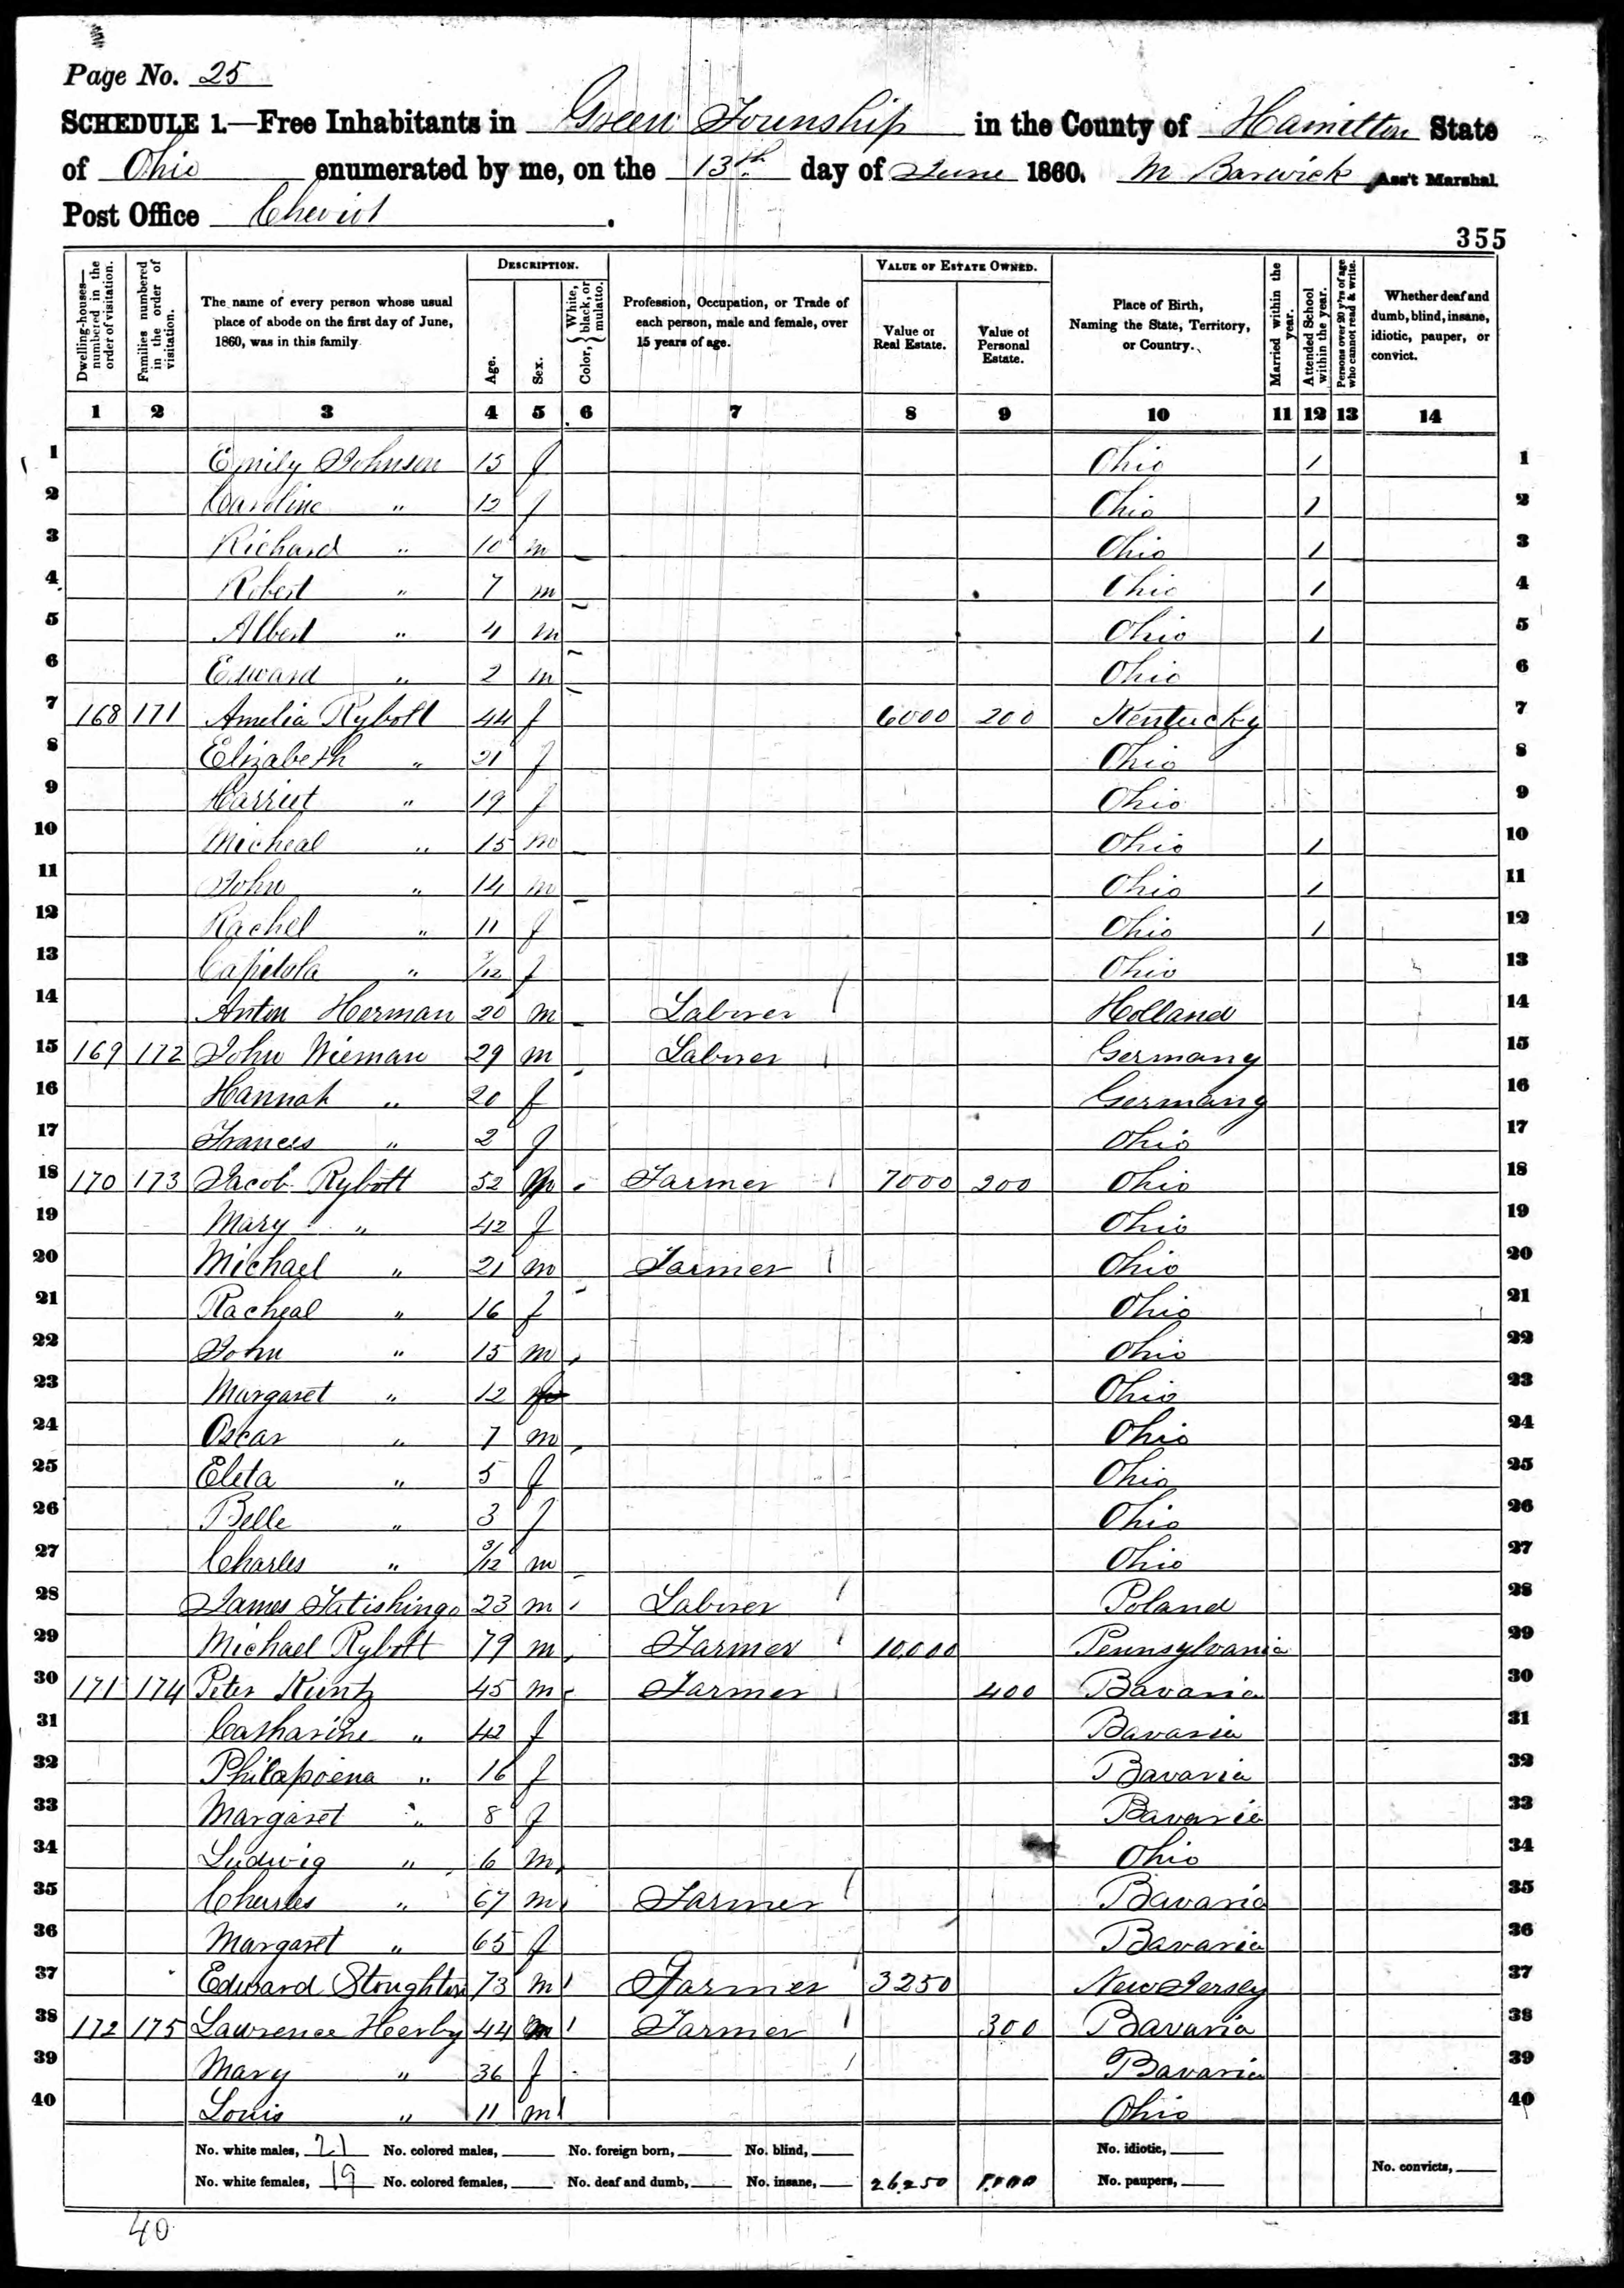 Page No. 25
SCHEDULE 1.—Free Inhabitants in Green Township in the County of Hamilton State
of Ohio enumerated by me, on the 13th day of June 1860. M Barwick Ass't Marshal.
Post Office Cheviot.
355
Dwelling-houses—numbered in the order of visitation.
Families numbered in the order of visitation.
The name of every person whose usual place of abode on the first day of June, 1860, was in this family.
DESCRIPTION.
Age.
Sex.
Color, { White, black, or mulatto.
Profession, Occupation, or Trade of each person, male and female, over 15 years of age.
VALUE OF ESTATE OWNED.
Value of Real Estate.
Value of Personal Estate.
Place of Birth, Naming the State, Territory, or Country.
Married within the year.
Attended School within the year.
Persons over 20 y'rs of age who cannot read & write.
Whether deaf and dumb, blind, insane, idiotic, pauper, or convict.
1 2 3 4 5 6 7 8 9 10 11 12 13 14
1 Emily Johnson 15 f Ohio / 1
2 Caroline " 12 f Ohio / 2
3 Richard " 10 m Ohio / 3
4 Robert " 7 m Ohio / 4
5 Albert " 4 m Ohio / 5
6 Edward " 2 m Ohio 6
7 168 171 Amelia Rybolt 44 f 6000 200 Kentucky 7
8 Elizabeth " 21 f Ohio 8
9 Harriet " 19 f Ohio 9
10 Micheal " 15 m Ohio / 10
11 John " 14 m Ohio / 11
12 Rachel " 11 f Ohio / 12
13 Capitola " /12 f Ohio 13
14 Anton Herman 20 m Laborer Holland 14
15 169 172 John Wieman 29 m Laborer Germany 15
16 Hannah " 20 f Germany 16
17 Frances " 2 f Ohio 17
18 170 173 Jacob Rybolt 52 m Farmer 7000 200 Ohio 18
19 Mary " 42 f Ohio 19
20 Michael " 21 m Farmer Ohio 20
21 Racheal " 16 f Ohio 21
22 John " 15 m Ohio 22
23 Margaret " 12 f Ohio 23
24 Oscar " 7 m Ohio 24
25 Eleta " 5 f Ohio 25
26 Belle " 3 f Ohio 26
27 Charles " 3/12 m Ohio 27
28 James Tatishingo 23 m Laborer Poland 28
29 Michael Rybolt 79 m Farmer 10,000 Pennsylvania 29
30 171 174 Peter Kuntz 45 m Farmer 400 Bavaria 30
31 Catharine " 42 f Bavaria 31
32 Philapoena " 16 f Bavaria 32
33 Margaret " 8 f Bavaria 33
34 Ludwig " 6 m Ohio 34
35 Charles " 67 m Farmer Bavaria 35
36 Margaret " 65 f Bavaria 36
37 Edward Stoughton 73 m Farmer 3250 New Jersey 37
38 172 175 Lawrence Heerby 44 m Farmer 300 Bavaria 38
39 Mary " 36 f Bavaria 39
40 Louis " 11 m Ohio 40
No. white males, 21 No. colored males, No. foreign born, No. blind, No. idiotic,
No. white females, 19 No. colored females, No. deaf and dumb, No. insane, 26,250 No. paupers, No. convicts,
40